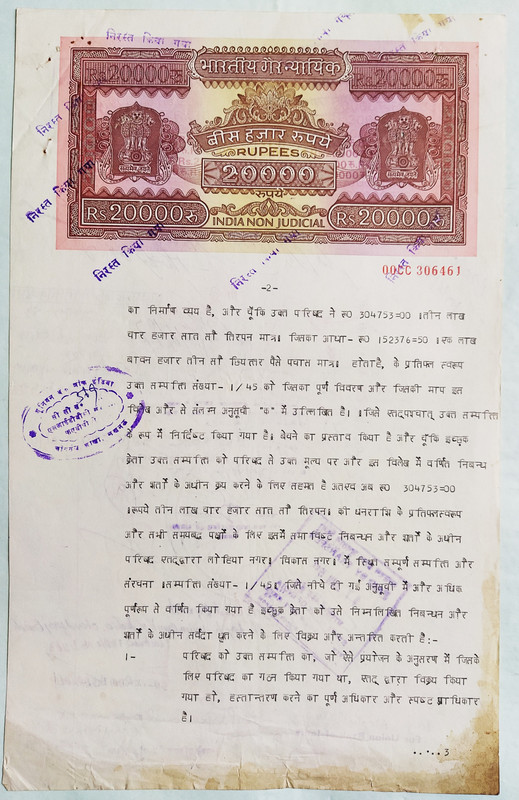 निरस्त किया गया
निरस्त किया गया
निरस्त किया गया
Rs 20000 रु
भारतीय गैर न्यायिक
Rs 20000 रु
बीस हजार रुपये
RUPEES
20000
रुपये
Rs 20000 रु
INDIA NON JUDICIAL
Rs 20000 रु
निरस्त किया गया
निरस्त किया गया
निरस्त किया गया
00CC 306461
-2-
का निर्माण व्यय है, और चूँकि उक्त परिषद ने रू0 304753=00 ।तीन लाख
चार हजार सात सौ तिरपन मात्र। जिसका आधा- रू0 152376=50 ।एक लाख
बावन हजार तीन सौ छियत्तर पैसे पचास मात्र। होताहै, के प्रतिफल स्वरूप
उक्त सम्पत्ति संख्या- 1/45 को जिसका पूर्ण विवरण और जिसकी माप इस
विलेख और से संलग्न अनुसूची "क" में उल्लिखित है। ।जिसे एतद्पश्चात् उक्त सम्पत्ति
के रूप में निर्दिष्ट किया गया है। बेचने का प्रस्ताव किया है और चूंकि इच्छुक
क्रेता उक्त सम्पत्ति को परिषद से उक्त मूल्य पर और इस विलेख में वर्णित निबन्धन
और शर्तों के अधीन क्रय करने के लिए सहमत है अतएव अब रू0 304753=00
।रूपये तीन लाख चार हजार सात सौ तिरपन। की धनराशि के प्रतिफलस्वरूप
और सभी समयबद्ध पक्षों के लिए इसमें समाविष्ट निबन्धन और शर्तों के अधीन
परिषद एतद्द्वारा लोहिया नगर। विकास नगर। में स्थित सम्पूर्ण सम्पत्ति और
संरचना ।सम्पत्ति संख्या- 1/45। जिसे नीचे दी गई अनुसूची में और अधिक
पूर्णरूप से वर्णित किया गया है इच्छुक क्रेता को उसे निम्नलिखित निबन्धन और
शर्तों के अधीन सर्वदा धृत करने के लिए विक्रय और अन्तरित करती है:-
1- परिषद को उक्त सम्पत्ति का, जो ऐसे प्रयोजन के अनुसरण में जिसके
लिए परिषद का गठन किया गया था, एतद् द्वारा विक्रय किया
गया हो, हस्तान्तरण करने का पूर्ण अधिकार और स्पष्ट प्राधिकार
है।
.....3